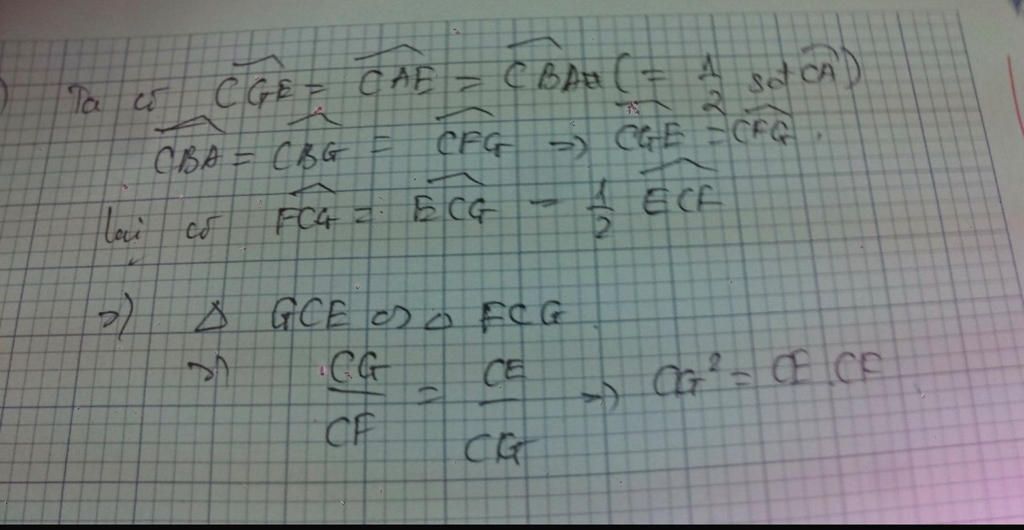 Ta có \widehat{CGE} = \widehat{CAE} = \widehat{CBA} ( = \frac{1}{2} sđ \widehat{CA} )
\widehat{CBA} = \widehat{CBG} = \widehat{CFG} => \widehat{CGE} = \widehat{CFG} .
lại có \widehat{FCG} = \widehat{ECG} = \frac{1}{2} \widehat{ECF}
=> Δ GCE ∽ Δ FCG
=> \frac{CG}{CF} = \frac{CE}{CG} => CG² = CE . CF